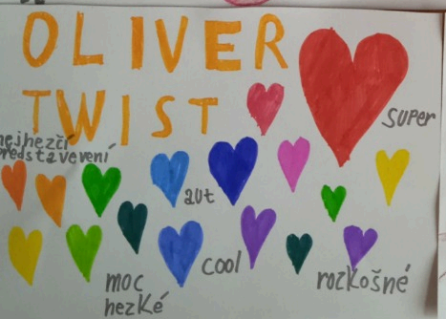 OLIVER
TWIST
super
nejhezčí
představe​vení
aut
cool
moc
hezké
rozkošné